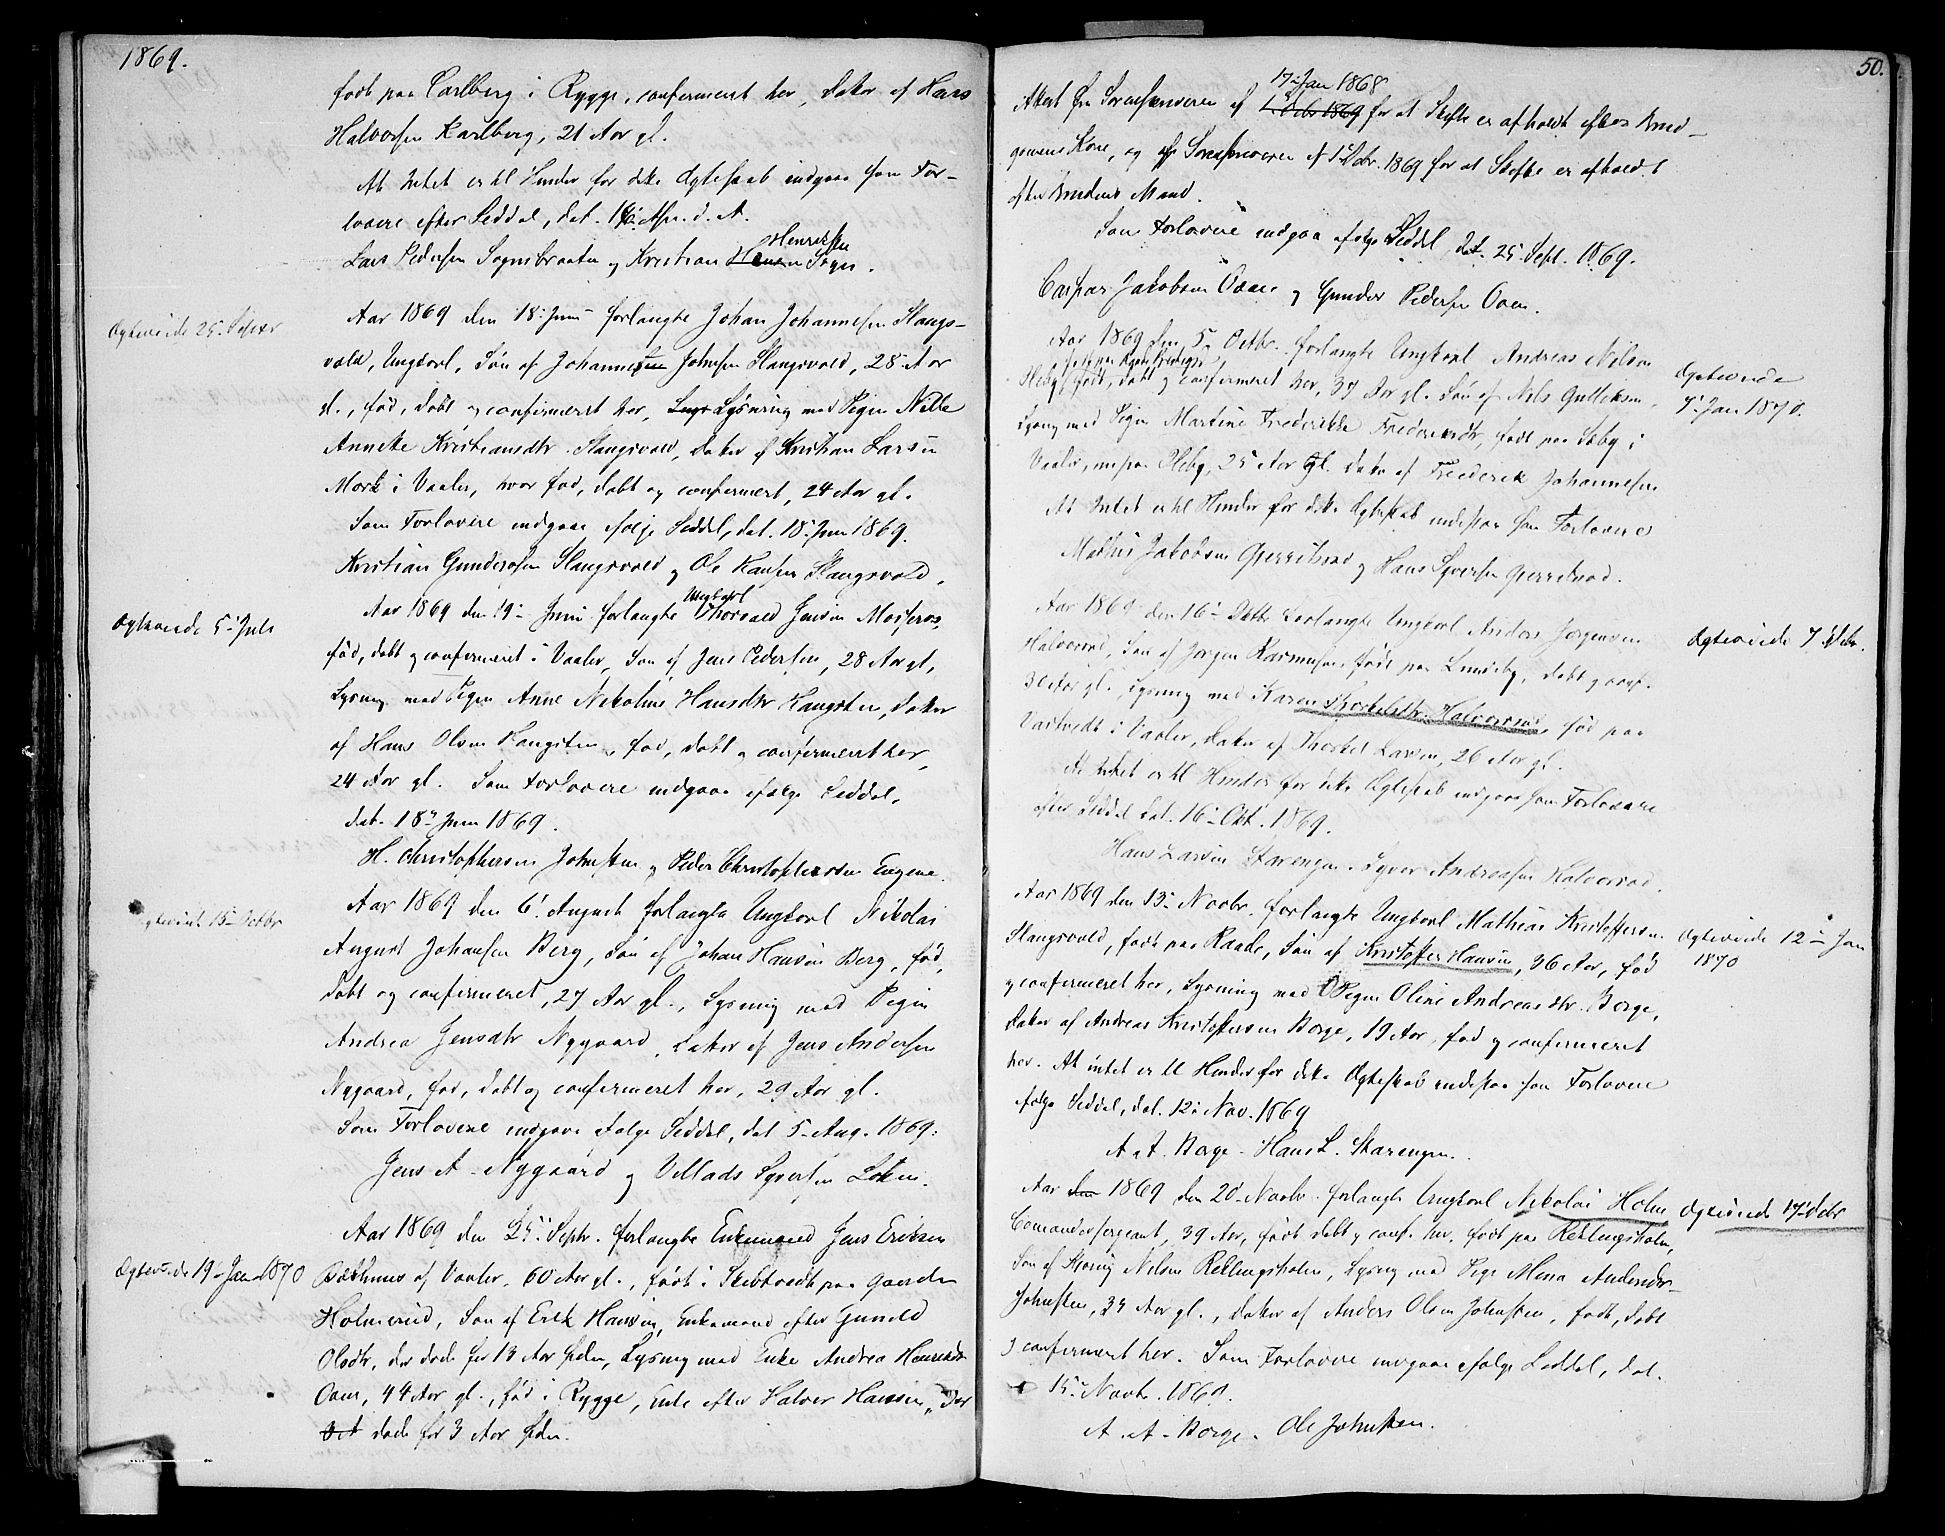 1869.
født paa Carlberg i Rygge, confirmeret her, Datter af Hans
Halvorsen Karlberg, 21 Aar gl.
At Intet er til Hinder for dette Ægteskab indgaae som For-
lovere efter Seddel, dat. d. A.
Lars Pedersen Sognsbraaten og Kristian Hansen Henriksen Sogn.
Ægteviede 25 Septbr
Aar 1869 den 18 Juni forlangte Johan Johannesen Slangs-
vold, Ungkarl, Søn af Johannes Johnsen Slangsvold, 28 Aar
gl., fød, døbt og confirmeret her, Lysning med Pigen
Anneke Kristiansdtr Slangsvold, Datter af Kristian Larsen
Mørk i Vaaler, hvor fød, døbt og confirmert, 24 Aar gl.
Som Forlovere indgaae ifølge Seddel, dat. 18 Juni 1869.
Kristian Gundersen Slangsvold og Ole Hansen Slangsvold.
Ægteviede 5 Juli
Aar 1869 den 19 Juni forlangte Ungkarl Thorvald Jensen Moseros,
fød, døbt og confirmeret i Vaaler, Søn af Jens Pedersen, 28 Aar gl,
Lysning med Pigen Anne Nikoline Hansdtr Kangsten, Datter
af Hans Olsen Kangsten, fød, døbt og confirmeret her,
24 Aar gl. Som Forlovere indgaae ifølge Seddel,
dat. 18 Juni 1869.
H. Christophersen Johnsten og Peder Christophersen Engene.
Ægteviet 15 Octbr
Aar 1869 den 6 August forlangte Ungkarl Nikolai
August Johansen Berg, Søn af Johan Hansen Berg, fød,
døbt og confirmeret, 27 Aar gl., Lysning med Pigen
Andrea Jensdtr Nygaard, Datter af Jens Andersen
Nygaard, fød, døbt og confirmeret her, 29 Aar gl.
Som Forlovere indgaae ifølge Seddel, dat 5 Aug. 1869:
Jens A. Nygaard og Villads Syversen Løken.
Ægteviede 19 Jan 1870
Aar 1869 den 25 Septr. forlangte Enkemand Jens Eriksen
Bæhuus af Vaaler, 60 Aar gl., født i Skibtvedt paa Gaarden
Holmerud, Søn af Erik Hansen, Enkemand efter Gunild
Olsdtr, der døde for 13 Aar siden, Lysning med Enke Andrea Henriksdtr
Oaen, 44 Aar gl., fød i Rygge, Enke efter Halvor Hansen, der
døde for 3 Aar siden.
50.
Attest fra Sorenskriveren af 17 Jan 1868 1 Octbr 1869 for at Skifte er afholdt efter Brud-
gomens Kone, og fra Sorenskriveren af 1 Octbr. 1869 for at Skifte er afholdt
efter Brudens Mand.
Som Forlovere indgaae ifølge Seddel, dat. 25 Sept. 1869.
Caspar Jakobsen Oaen og Gunder Pedersen Oaen.
Ægteviede 7 Jan 1870.
Aar 1869 den 5 Octbr. forlangte Ungkarl Andreas Nilsen
født, døbt og confirmeret her, 37 Aar gl. Søn af Nils Gulliksen,
Lysning med Pigen Martine Frederikke Frederiksdtr, født paa Sæby i
Vaaler, 25 Aar gl. Datter af Frederik Johannesen
At Intet er til Hinder for dette Ægteskab indestaa som Forlovere
Mathis Jakobsen Gjerritsrød og Hans Syversen Gjerritsrød.
Ægteviede 7 Dcbr.
Aar 1869 den 16 Octbr forlangte Ungkarl Anders Jørgensen
Halvorsrød, Søn af Jørgen Rasmussen, født paa Lundeby, døbt og conf.
Aar gl., Lysning med Karen Torkelsdtr. Halvorsrød, fød paa
i Vaaler, Datter af Thorkel Larsen, 26 Aar gl.
At Intet er til Hinder for dette Ægteskab indgaae som Forlovere
efter Seddel dat. 16 Okt. 1869.
Hans Larsen Starengen. Syver Andreasen Halvorsrød.
Ægteviede 12 Jan
1870
Aar 1869 den 13 Novbr. forlangte Ungkarl Mathias Kristoffersen
Slangsvold, født paa Raade, Søn af Kristoffer Hansen, 36 Aar, fød
og confirmeret her, Lysning med Pigen Oline Andreasdtr. Borge,
Datter af Andreas Kristoffersen Borge, 19 Aar, fød og confirmeret
her. At intet er til Hinder for dette Ægteskab indestaa som Forlovere
ifølge Seddel, dat. 12 Nov. 1869
A. A. Borge. Hans L. Starengen.
Ægteviede 17 Dcbr
Aar den 1869 den 20 Novbr. forlangte Ungkarl Nikolai Holm
Comandersergeant, 39 Aar, født døbt og conf. her, født paa Rellingsholm,
Søn af Nilsen Rellingsholm, Lysning med Pige Mina Andersdtr
Johnsten, 34 Aar gl., Datter af Anders Olsen Johnsten, født, døbt
og confirmeret her. Som Forlovere indgaae ifølge Seddel, dat.
15 Novbr. 1869.
A. A. Borge. Ole Johnsten.